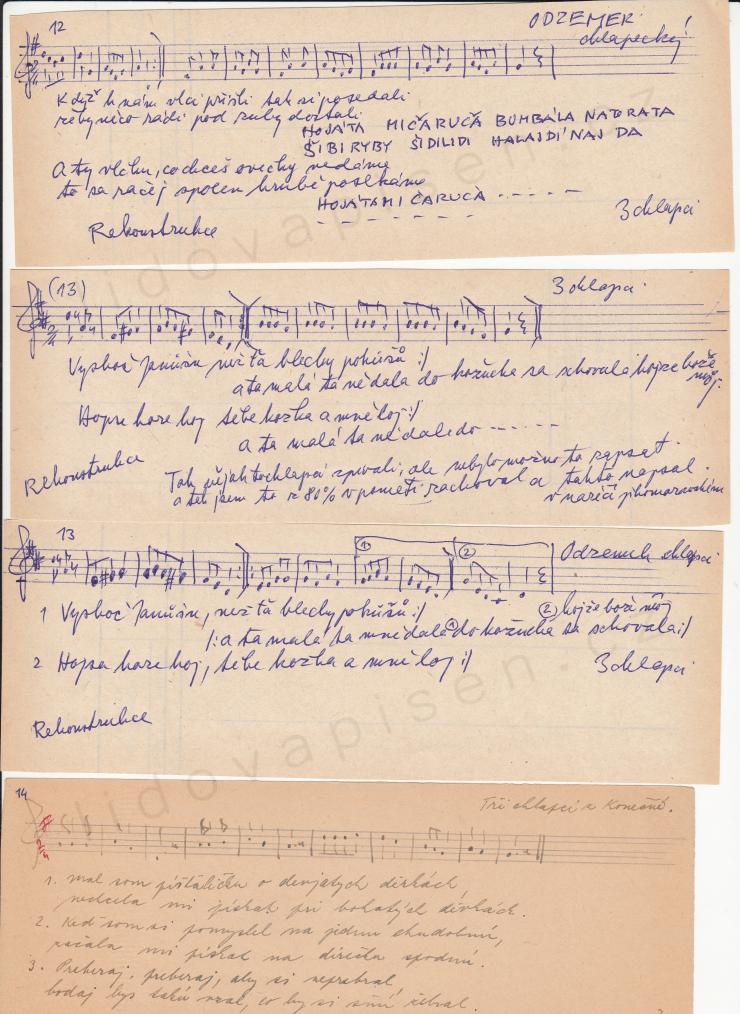 12
ODZEMEK
chlapecký
Když k nám vlci přišli tak si posedali
žeby nico rádi pod zuby dostali
HOJÁTA MIČARUČA BUMBÁLA NATORATA
ŠIBIRYBY ŠIDILIDI HALAJDÍ NAJ DA
A ty vlčku, co chceš ovečky nedáme
to sa račej spolem hrubě poštkáme
HOJÁTAMIČARUČA
3 chlapci
Rekonstrukce
(13)
3 chlapci
Vyskoč Janíčku než ťa blechy pokúšú :/
a ta malá ta nědala do kožucha sa schovala hojže bože
můj.
Hopsa hore hoj tebe kožka a mně loj :/
a ta malá ta nědala do
Rekonstrukce
Tak nějak to chlapci zpívali, ale nebylo možno to zapsat.
a tak jsem to z 80% v paměti zachoval a takto napsal.
v nářečí jihomoravském
13
1
2
Odzemek chlapci
1 Vyskoč Janíčku, než ťa blechy pokúšú :/
2 hojže bože můj
/: a ta malá ta mně dala 1 do kožucha sa schovala :/
2 Hopsa hore hoj, tebe kožka a mně loj :/
3 chlapci
Rekonstrukce
14
Tři chlapci z Konečné.
1. mal som píšťaličku o devjatych dírkách,
nedcela mi pískat pri bohatých dívkách.
2. Keď som si pomyslel na jednu chudobnú,
začala mi pískat na dírečku spodnú.
3. Preberaj, preberaj, aby si neprebral,
bodaj bys takú vzal, co by si s ňú žebral.
lidovapisen.cz